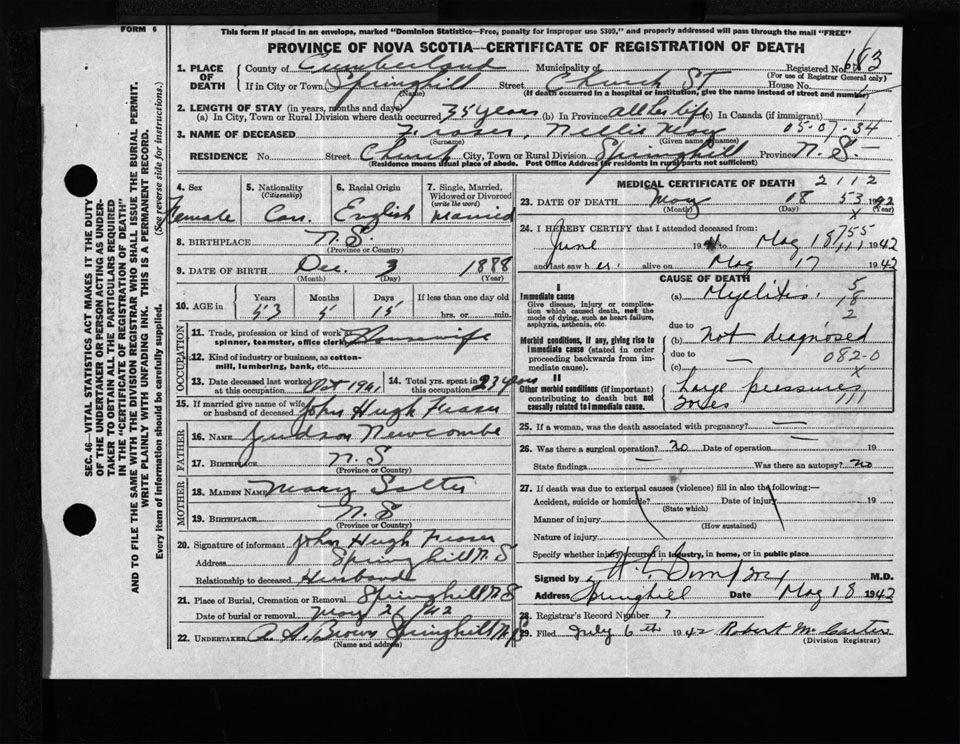 FORM 6
This form if placed in an envelope, marked "Dominion Statistics—Free, penalty for improper use $300," and properly addressed will pass through the mail "FREE"
PROVINCE OF NOVA SCOTIA—CERTIFICATE OF REGISTRATION OF DEATH
SEC. 46—VITAL STATISTICS ACT MAKES IT THE DUTY
OF THE UNDERTAKER OR PERSON ACTING AS UNDER-
TAKER TO OBTAIN ALL THE PARTICULARS REQUIRED
IN THE "CERTIFICATE OF REGISTRATION OF DEATH"
AND TO FILE THE SAME WITH THE DIVISION REGISTRAR WHO SHALL ISSUE THE BURIAL PERMIT.
WRITE PLAINLY WITH UNFADING INK. THIS IS A PERMANENT RECORD.
Every item of information should be carefully supplied. (See reverse side for instructions.)
1. PLACE OF DEATH County of Cumberland Municipality of Registered No. 183
(For use of Registrar General only)
If in City or Town Springhill Street Church ST House No.
(Name) (If death occurred in a hospital or institution, give the name instead of street and number)
2. LENGTH OF STAY (in years, months and days)
(a) In City, Town or Rural Division where death occurred 35 years (b) In Province all her life (c) In Canada (if immigrant)
3. NAME OF DECEASED Fraser, Nellie May 05-07-34
(Surname) (Given names)
RESIDENCE No. Street Church City, Town or Rural Division Springhill Province N.S.
(Residence means usual place of abode. Post Office Address for residents in rural parts not sufficient)
4. Sex Female
5. Nationality (Citizenship) Can.
6. Racial Origin English
7. Single, Married, Widowed or Divorced (write the word) Married
8. BIRTHPLACE N.S.
(Province or Country)
9. DATE OF BIRTH Dec. 3 1888
(Month) (Day) (Year)
10. AGE in Years Months Days If less than one day old
53 5 15 hrs. or min.
OCCUPATION
11. Trade, profession or kind of work as spinner, teamster, office clerk, etc. Housewife
12. Kind of industry or business, as cotton-mill, lumbering, bank, etc.
13. Date deceased last worked at this occupation Oct 1941 14. Total yrs. spent in this occupation 23 years
15. If married give name of wife or husband of deceased John Hugh Fraser
FATHER
16. NAME Judson Newcombe
17. BIRTHPLACE N.S
(Province or Country)
MOTHER
18. MAIDEN NAME Mary Salter
19. BIRTHPLACE N.S
(Province or Country)
20. Signature of informant John Hugh Fraser
Address Springhill N.S
Relationship to deceased Husband
21. Place of Burial, Cremation or Removal Springhill N.S
Date of burial or removal May 21/42
22. UNDERTAKER A. S. Brown Springhill N.S
(Name and address)
MEDICAL CERTIFICATE OF DEATH 2112
23. DATE OF DEATH May 18 53 1942
(Month) (Day) (Year)
x
24. I HEREBY CERTIFY that I attended deceased from:
June 1941 to May 18 1942
and last saw her alive on May 17 1942
CAUSE OF DEATH
I
Immediate cause
Give disease, injury or complication which caused death, not the mode of dying, such as heart failure, asphyxia, asthenia, etc.
(a) Myelitis
due to
Morbid conditions, if any, giving rise to immediate cause (stated in order proceeding backwards from immediate cause).
(b) not diagnosed
due to 082-0
(c) — x
II
Other morbid conditions (if important) contributing to death but not causally related to immediate cause.
Large pressure sores
25. If a woman, was the death associated with pregnancy?
26. Was there a surgical operation? no Date of operation 19
State findings Was there an autopsy? no
27. If death was due to external causes (violence) fill in also the following:—
Accident, suicide or homicide? Date of injury 19
(State which)
Manner of injury
(How sustained)
Nature of injury
Specify whether injury occurred in industry, in home, or in public place
Signed by M.D.
Address Springhill Date May 18 1942
28. Registrar's Record Number 7
29. Filed July 6th 1942 Robert McCarter
(Division Registrar)